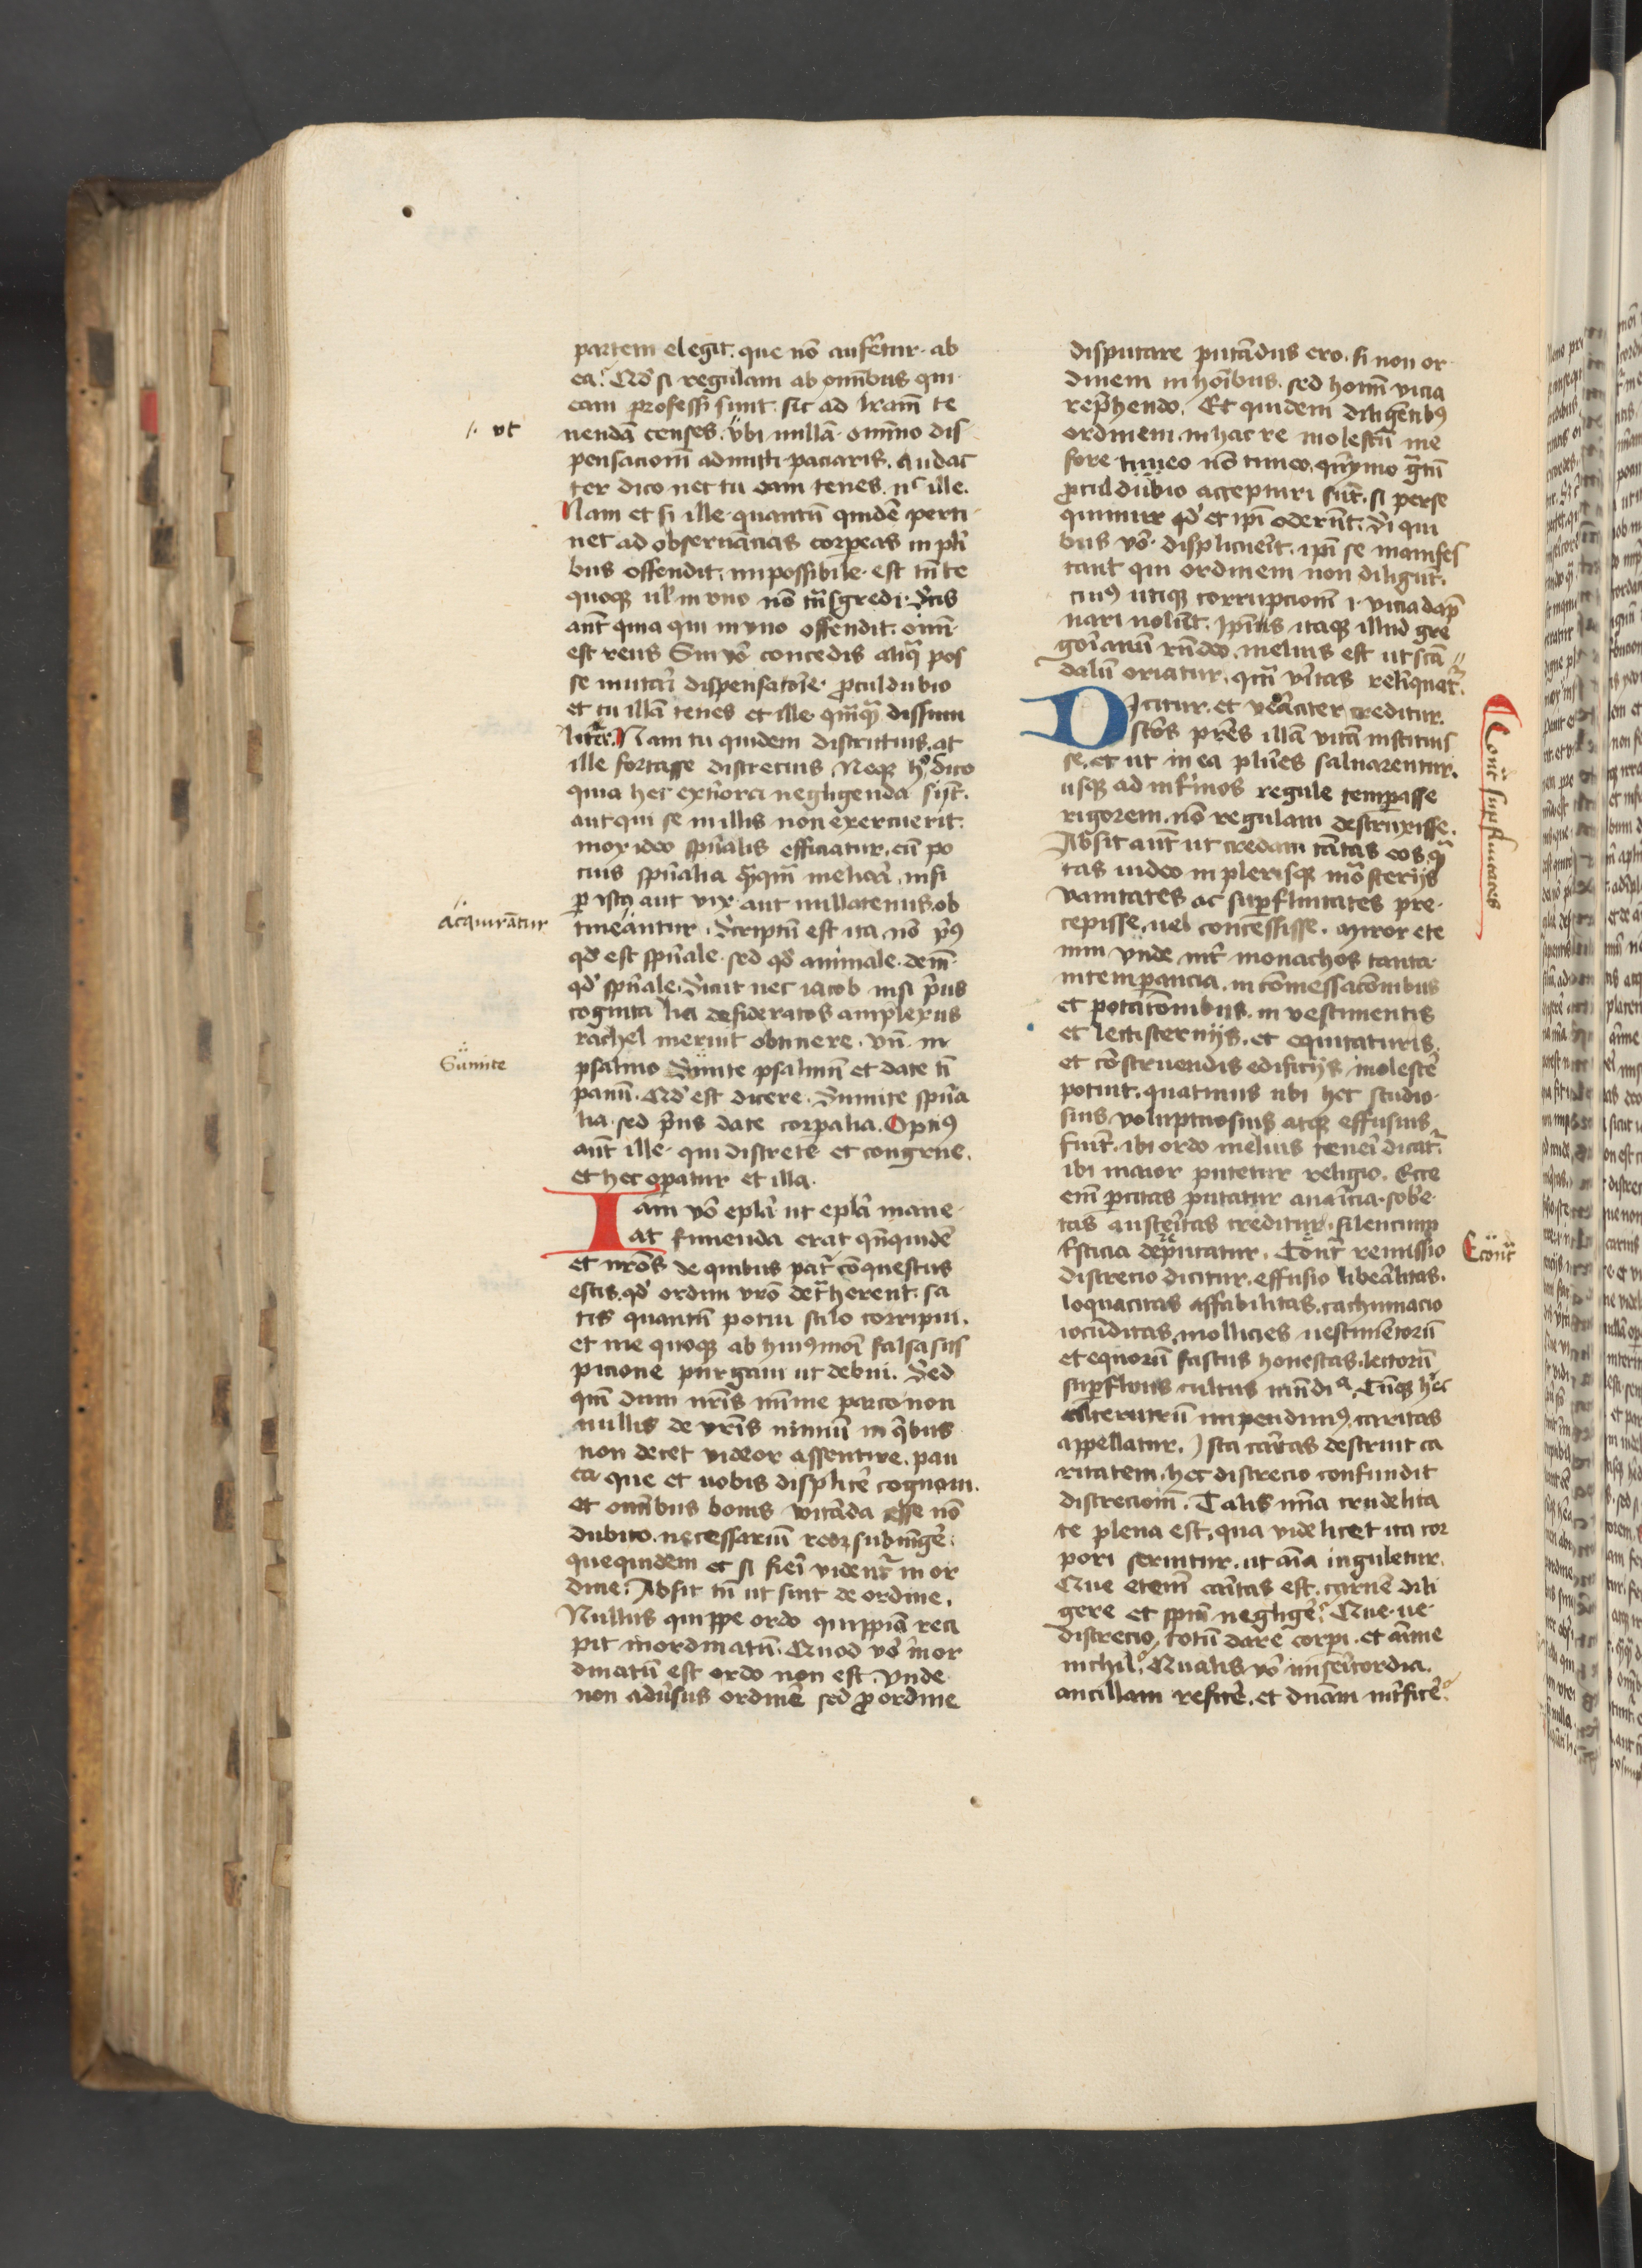 partem elegit. que nō auferetur ab
ea? Qd' si regulam ab omībus qui
eam professi sunt. sic ad lrām te
nendā censes. vbi nullā omīno dis
pensacionē admitti paciaris. audac
ter dico nec tu eam tenes. nec ille.
Nam et si ille quantū quidē perti
net ad obseruācias corpeas in plī
bus offendit. impossibile est tn̄ te
quoqꝫ ul' in vno nō trāsgredi. Scis
aūt quia qui in vno offendit. oīm
est reus Sin vō concedis aliqꝫ pos
se mutari dispensacōe. proculdubio
et tu illā tenes et ille. qmqꝫ dissimi
liter. Nam tu quidem districtius. at
ille fortasse discretius. Neqꝫ hoc dico
quia hec exteriora negligenda sint.
aut qui se in illis non exercuerit.
mox ideo spūalis efficiatur. cū po
cius spūalia qmqꝫ meliora. nisi
per ista aut vix aut nullatenus. ob
tineantur. Scriptū est ita. nō prius
qd' est spūale. sed qd' animale. deinde
qd' spūale. Sicut nec iacob nisi prius
cognita lia desideratos amplexus
rachel meruit obtinere. vn̄ in
psalmo Sumite psalmū et date ti
panū. Qd' est dicere. Sumite spūa
lia. sed prius date corpalia. Optimus
aūt ille. qui discrete et congrue.
et hec operatur et illa.
Iam vō epla ut epla mane
at finienda erat. qn̄quidē
et nrōs de quibus patr cōquestus
estis. qd' ordini vrō detraherent. sa
tis quantū potui stilo corripui.
et me quoqꝫ ab huiusmōi falsa sus
picione purgaui ut debui. Sed
qm̄ dum nrīs mīme parco non
nullis de vrīs nimiū in qībus
non decet videor assentire. pau
ca que et uobis displicere cognoui.
et omībus bonis vitāda esse nō
dubito. necessariū reor subiūgere.
que quidem et si fieri videntur in or
dine. Absit tn̄ ut sint de ordine.
Nullus quippe ordo quippiā reci
pit inordinatū. Quod vō inor
dinatū est ordo non est. Vnde
non aduersus ordinē sed pro ordine
disputare putādus ero. si non or
dinem in hoībus. sed hoīm vicia
reprehendo. Et quidem diligentibus
ordinem. in hac re molestū me
fore timeo nō timeo. quinymo gratū
proculdubio accepturi sūt. si perse
quimur qd' et ipī oderūt. Si qui
bus vō displicuerit. ipī se manifes
tant qui ordinem non diligūt.
cuius utiqꝫ corrupcionē i. vicia dāp
nari nolūt. Ipīs itaqꝫ illud gre
gorianū rn̄deo. melius est ut scā
dalū oriatur. qm̄ vēitas relinquatur.
Dicitur. et veraciter creditur.
scōs pres illā vitā instituis
se. et ut in ea plures saluarentur.
usqꝫ ad infirmos regule temperasse
rigorem. nō regulam destruxisse.
Absit aūt ut credam tātas eos. qn̄
tas uideo in plerisqꝫ mōasterijs
vanitates ac superfluitates pre
cepisse. uel concessisse. Miror ete
nim vnde inter monachos tanta
intemperancia. in cōmessacōnibus
et potacōnibus. in vestimentis
et lectisternijs. et equitaturis.
et cōstruendis edificijs. inolescere
potuit. quatinus ubi hec studio
sius. voluptuosius atqꝫ effusius
fiunt. ibi ordo melius teneri dicatur.
ibi maior putetur religio. Ecce
enī parcitas putatur auaricia. sobrie
tas austeritas creditur. silencium
tristicia deputatur. Econtra remissio
discrecio dicitur. effusio liberalitas.
loquacitas affabilitas. cachinnacio
iocūditas. mollicies uestimentorū
et equorū fastus honestas. lectorū
superfluus cultus mūdicia. Cūqꝫ hec
alterutrū impendimus. caritas
appellatur. Ista caritas destruit ca
ritatem. hec discrecio confundit
discrecionē. Talis mīa crudelita
te plena est. qua videlicet ita cor
pori seruitur. ut aīa iuguletur.
Que etenī caritas est. carnē dili
gere et spm̄ negligere? Que ue
discrecio. totū dare corpi. et anime
nichil? Qualis vō misericordia.
ancillam reficere. et dnām interficere?
ut
Acquirātur
Sumite
Contra superfluitates
Econtra